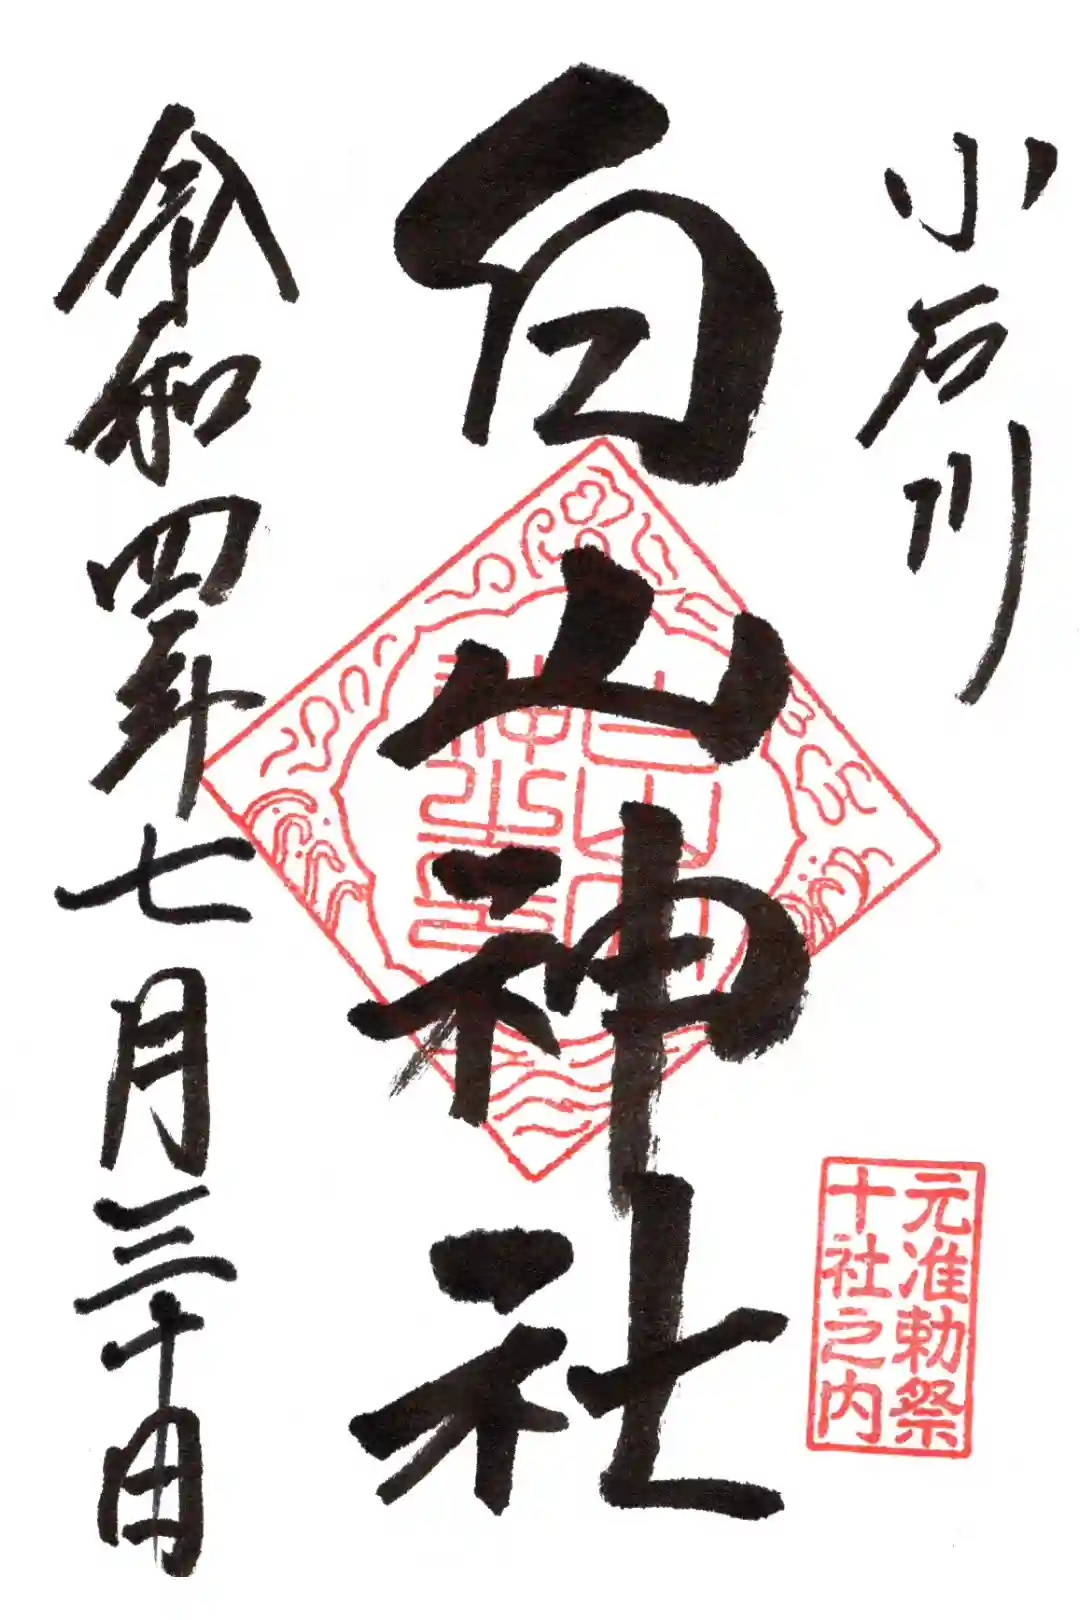 小石川
白山神社
令和四年七月三十日
元准勅祭
十社之内